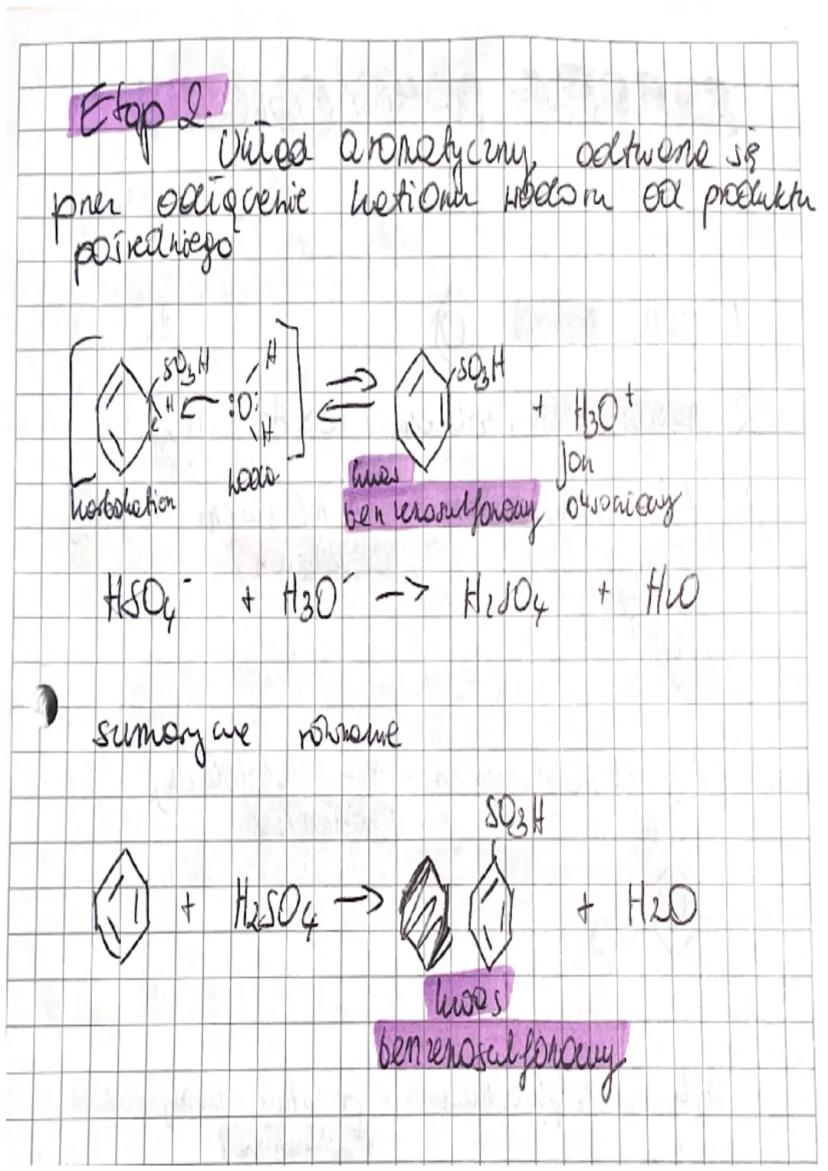 Etap 2.
Układ aromatyczny odtwarza się
przez odłączenie kationu wodoru od produktu
pośredniego
SO3H H
H :O: ⇌ SO3H + H3O+
H
karbokation woda kwas benzenosulfonowy jon oksoniowy
HSO4- + H3O- -> H2SO4 + H2O
sumaryczne równanie
SO3H
+ H2SO4 -> + H2O
kwas
benzenosulfonowy